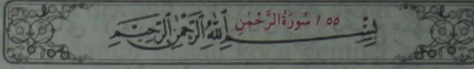 ٥٥ / سُورَةُ الرَّحْمٰنِ
بِسْمِ اللّٰهِ الرَّحْمٰنِ الرَّحِيمِ